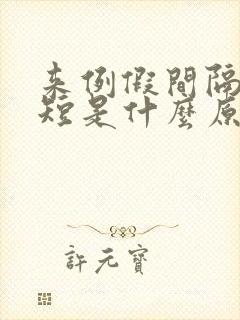 来例假間隔
短是什麼原
許元寶